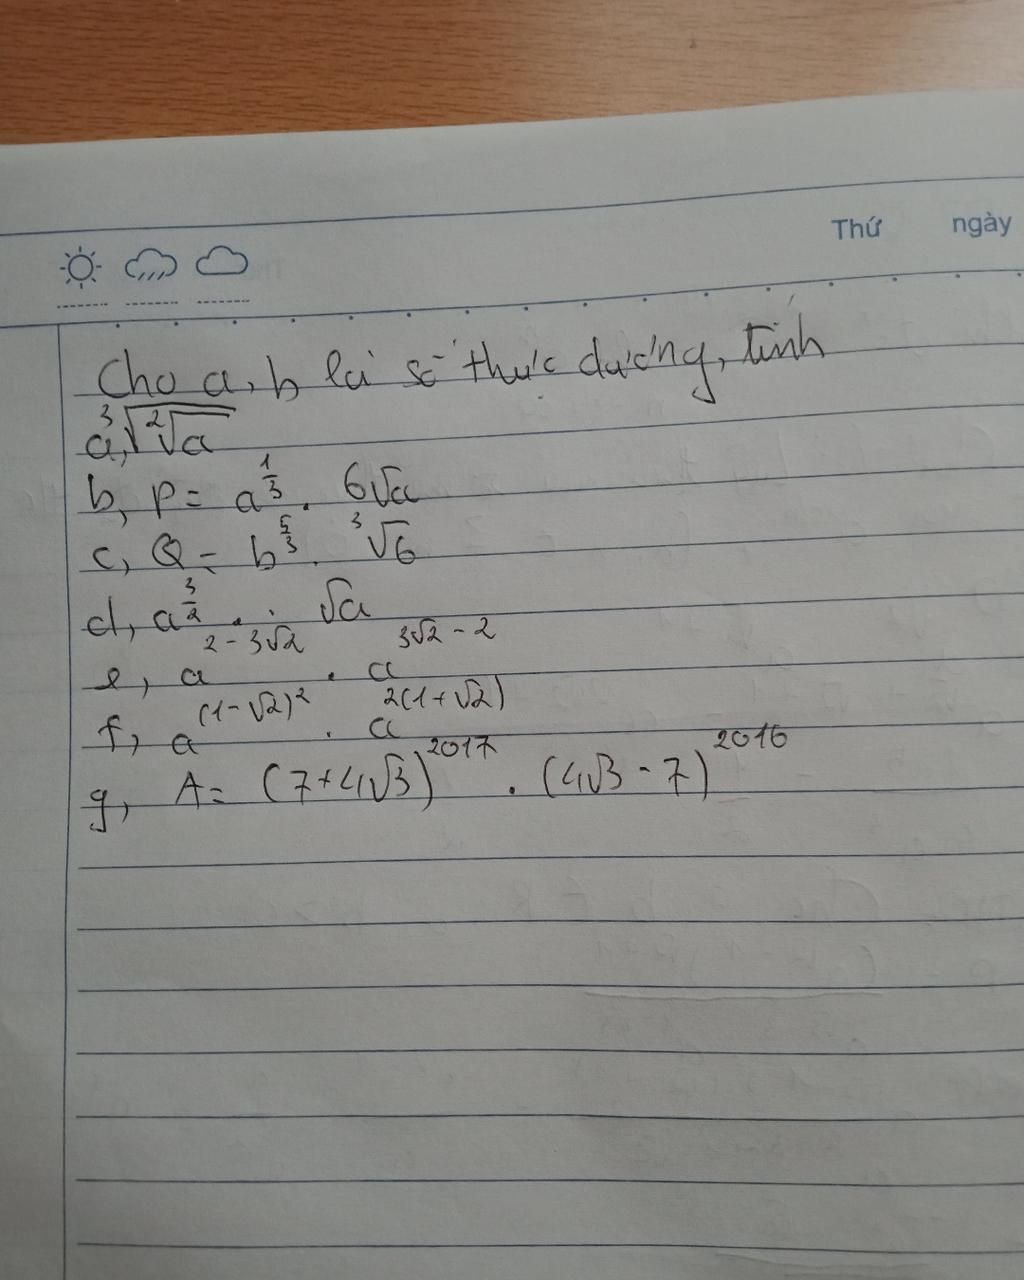 Thứ ngày
Cho a, b là số thực dương, tính
a, ∛(²√a)
b, P = a^(1/3) . 6√a
c, Q = b^(5/3) . ³√6
d, a^(3/2) . √a
e, a^(2-3√2) . a^(3√2-2)
f, a^((1-√2)²) . a^(2(1+√2))
g, A = (7+4√3)^2017 . (4√3-7)^2016